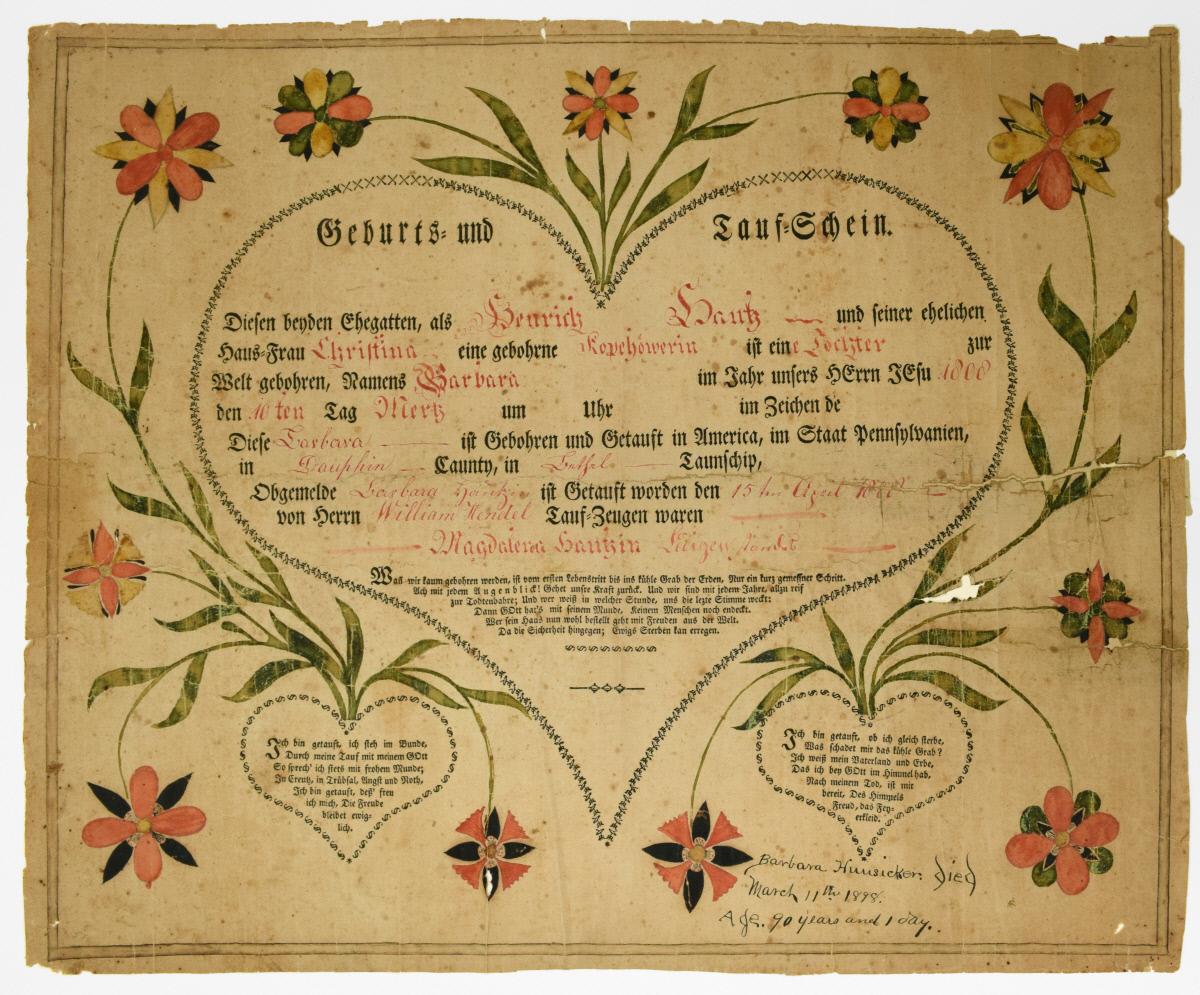 Geburts- und Tauf-Schein.
Diesen beyden Ehegatten, als Henrich Hautz und seiner ehelichen
Haus-Frau Christina eine gebohrne ist eine Tochter zur
Welt gebohren, Namens Barbara im Jahr unsers HErrn JEsu 1808
den 10 ten Tag Mertz um Uhr im Zeichen de
Diese Barbara ist Gebohren und Getauft in America, im Staat Pennsylvanien,
in Dauphin Caunty, in Bethel Taunschip,
Obgemelde Barbara Hautzin ist Getauft worden den 15 ten April 1808
von Herrn William Hendel Tauf-Zeugen waren
Magdalena Hautzin
Wañ wir kaum gebohren werden, ist vom ersten Lebenstritt bis ins kühle Grab der Erden, Nur ein kurz gemeßner Schritt.
Ach mit jedem Augenblick! Gehet unsre Kraft zurück. Und wir sind mit jedem Jahre, allzu reif
zur Todtenbahre; Und wer weiß in welcher Stunde, uns die lezte Stimme weckt:
Dann GOtt hat's mit seinem Munde, Keinem Menschen noch endeckt.
Wer sein Haus nun wohl bestellt geht mit Freuden aus der Welt.
Da die Sicherheit hingegen; Ewigs Sterben kan erregen.
Ich bin getauft, ich steh im Bunde,
Durch meine Tauf mit meinem GOtt
So sprech' ich stets mit frohem Munde;
In Creutz, in Trübsal, Angst und Noth,
Ich bin getauft, deß' freu
ich mich, Die Freude
bleibet ewig-
lich.
Ich bin getauft, ob ich gleich sterbe,
Was schadet mir das kühle Grab?
Ich weiß mein Vaterland und Erbe,
Das ich bey GOtt im Himmel hab,
Nach meinem Tod, ist mir
bereit, Des Himmels
Freud, das Fey-
erkleid.
Barbara Hunsicker. Died
March 11th 1898.
Age. 90 years and 1 day.